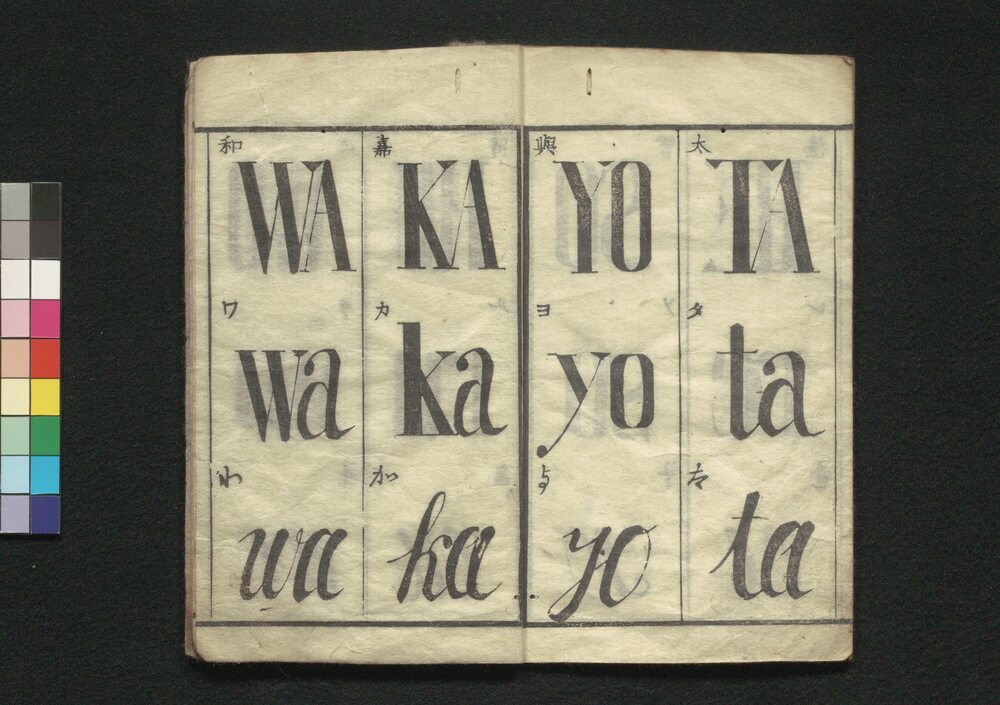 和 嘉 與 太
WA KA YO TA
ワ カ ヨ タ
wa ka yo ta
わ か よ た
wa ka yo ta